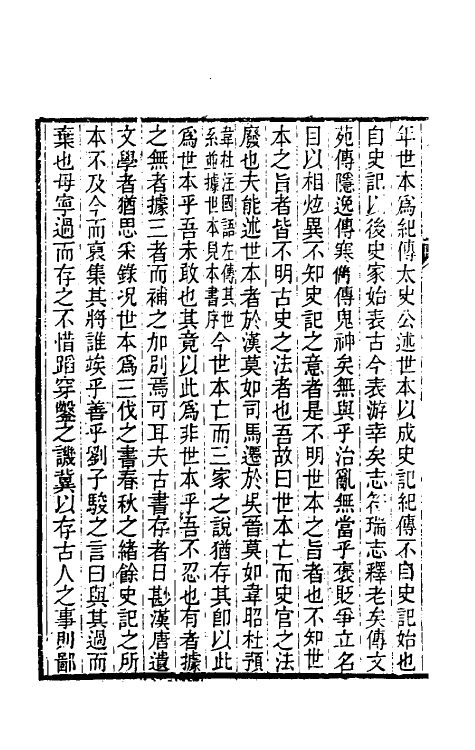 年世本爲紀傳太史公述世本以成史記紀傳不自史記始也
自史記以後史家始表古今表游幸矣志符瑞志釋老矣傳文
苑傳隱逸傳寒儁傳鬼神矣無與乎治亂無當乎褒貶爭立名
目以相炫異不知史記之意者是不明世本之旨者也不知世
本之旨者皆不明古史之法者也吾故曰世本亡而史官之法
廢也夫能述世本者於漢莫如司馬遷於吳晉莫如韋昭杜預
韋杜注國語左傳其世
系並據世本見本書序今世本亡而三家之說猶存其卽以此
爲世本乎吾未敢也其竟以此爲非世本乎吾不忍也有者據
之無者據三者而補之加別焉可耳夫古書存者日尠漢唐遺
文學者猶思采錄况世本爲三代之書春秋之緒餘史記之所
本不及今而裒集其將誰俟乎善乎劉子駿之言曰與其過而
棄也毋寧過而存之不惜蹈穿鑿之譏冀以存古人之事則鄙